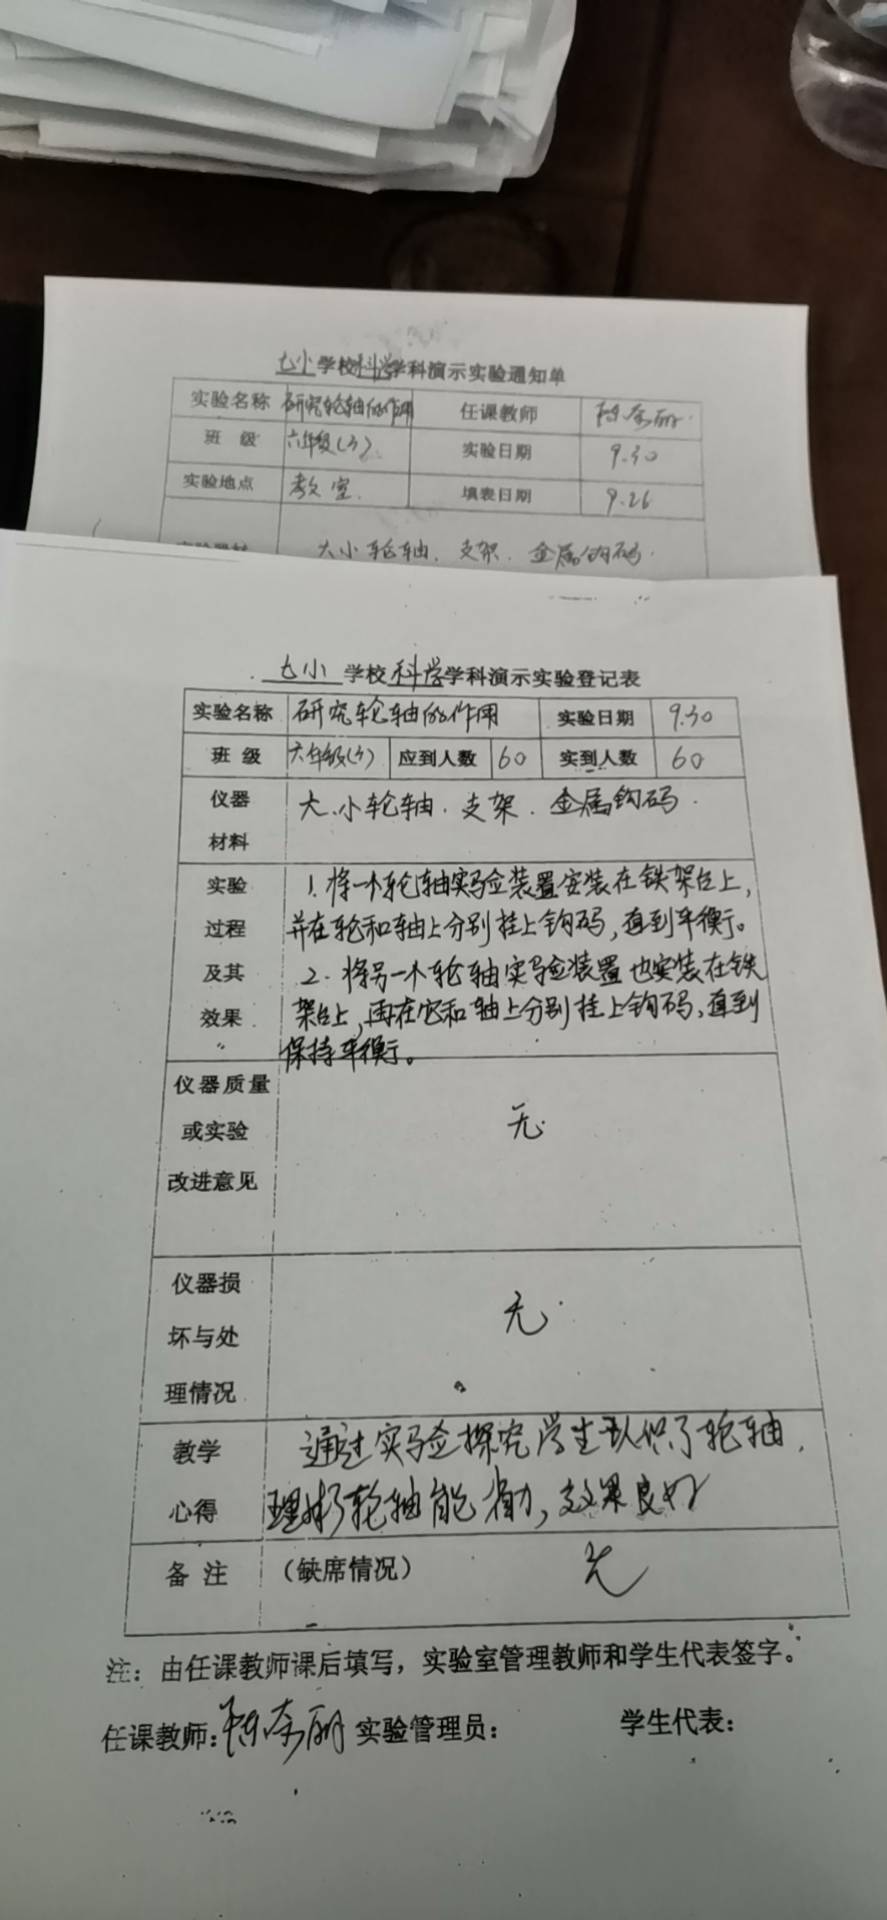 七小学校科学学科演示实验通知单
实验名称 研究轮轴的作用 任课教师
班 级 六年级(3) 实验日期 9.30
实验地点 教室. 填表日期 9.26
大小轮轴. 支架. 金属钩码.
七小 学校科学学科演示实验登记表
实验名称 研究轮轴的作用 实验日期 9.30
班 级 六年级(3) 应到人数 60 实到人数 60
仪器 大.小轮轴. 支架. 金属钩码.
材料
实验 1.将一个轮轴实验装置安装在铁架台上,
过程 并在轮和轴上分别挂上钩码,直到平衡。
及其 2.将另一个轮轴实验装置也安装在铁
效果 架台上,再在它和轴上分别挂上钩码,直到
保持平衡。
仪器质量
或实验 无.
改进意见
仪器损
坏与处 无.
理情况
教学 通过实验探究学生认识了轮轴.
心得 理解了轮轴能省力,效果良好
备 注 (缺席情况) 无
注: 由任课教师课后填写,实验室管理教师和学生代表签字。
任课教师: 实验管理员: 学生代表: